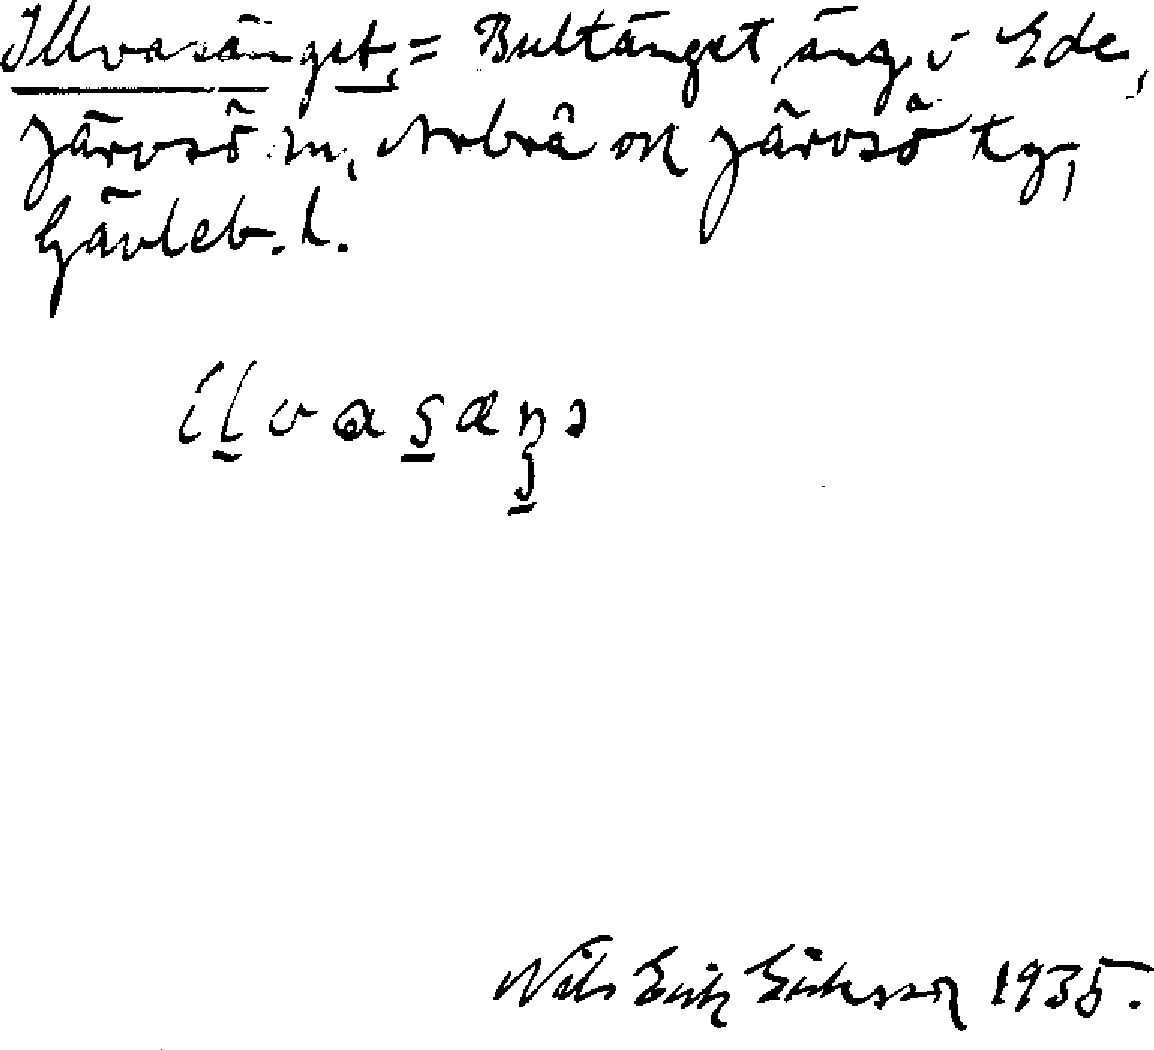 Illvasänget, = Bultänget, äng i Ede,
Järvsö sn, Arbrå och Järvsö tg,
Gävleb. l.
ilvasæŋə
Nils Erik Eriksson 1935.